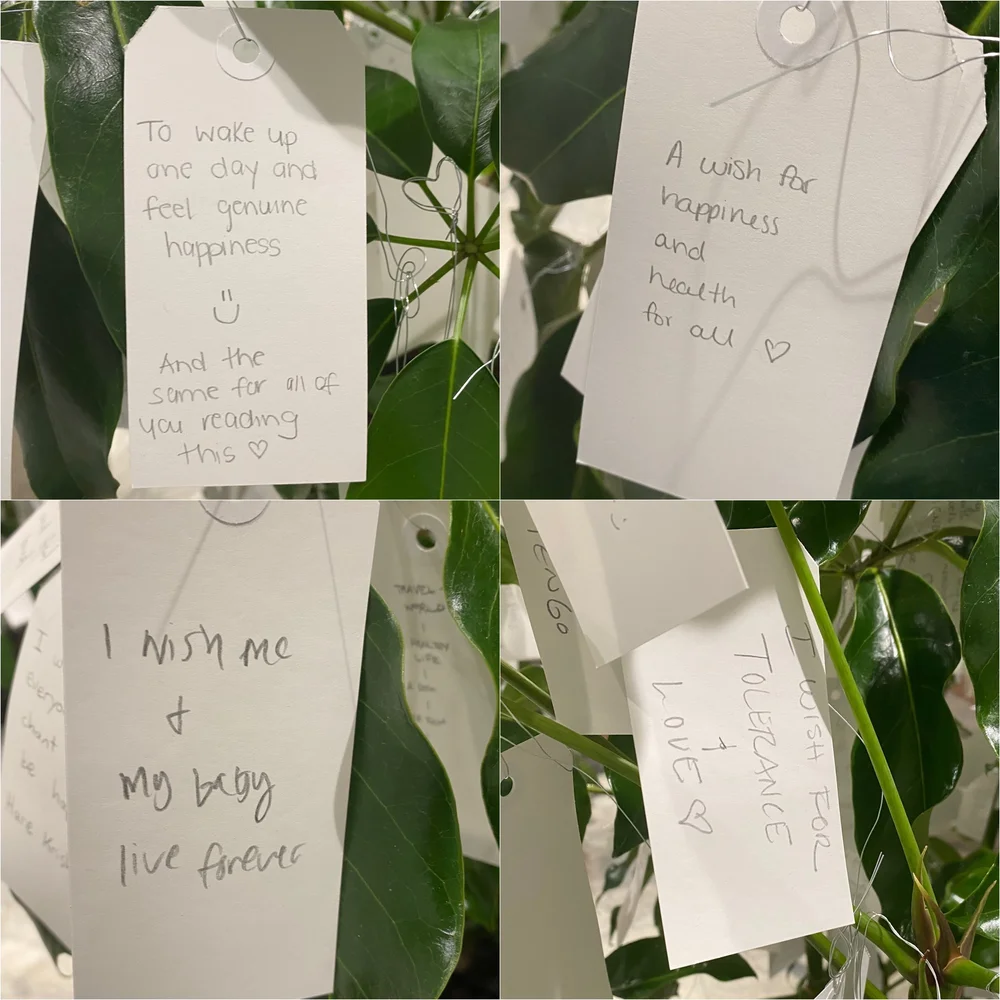 To wake up
one day and
feel genuine
happiness
And the
same for all of
you reading
this ♡
A wish for
happiness
and
health
for all ♡
I wish me
+
my baby
live forever
I W
everyo
chant
be ha
Hare Kris
TRAVEL
WORLD
HEALTHY
LIFE
TENGO
I WISH FOR
TOLERANCE
+
LOVE ♡